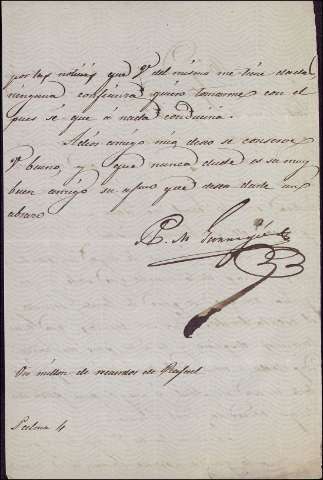 por las noticias que V. del mismo me tiene dadas
ninguna confianza quiero tomarme con el
pues sé que á nada conduciria.
Adios amigo mio, deseo se conserve
V. bueno, y que nunca dude es su muy
buen amigo su afmo que desea darle un
abrazo
P. M.
Un millon de recuerdos de Rafael
Palma 4